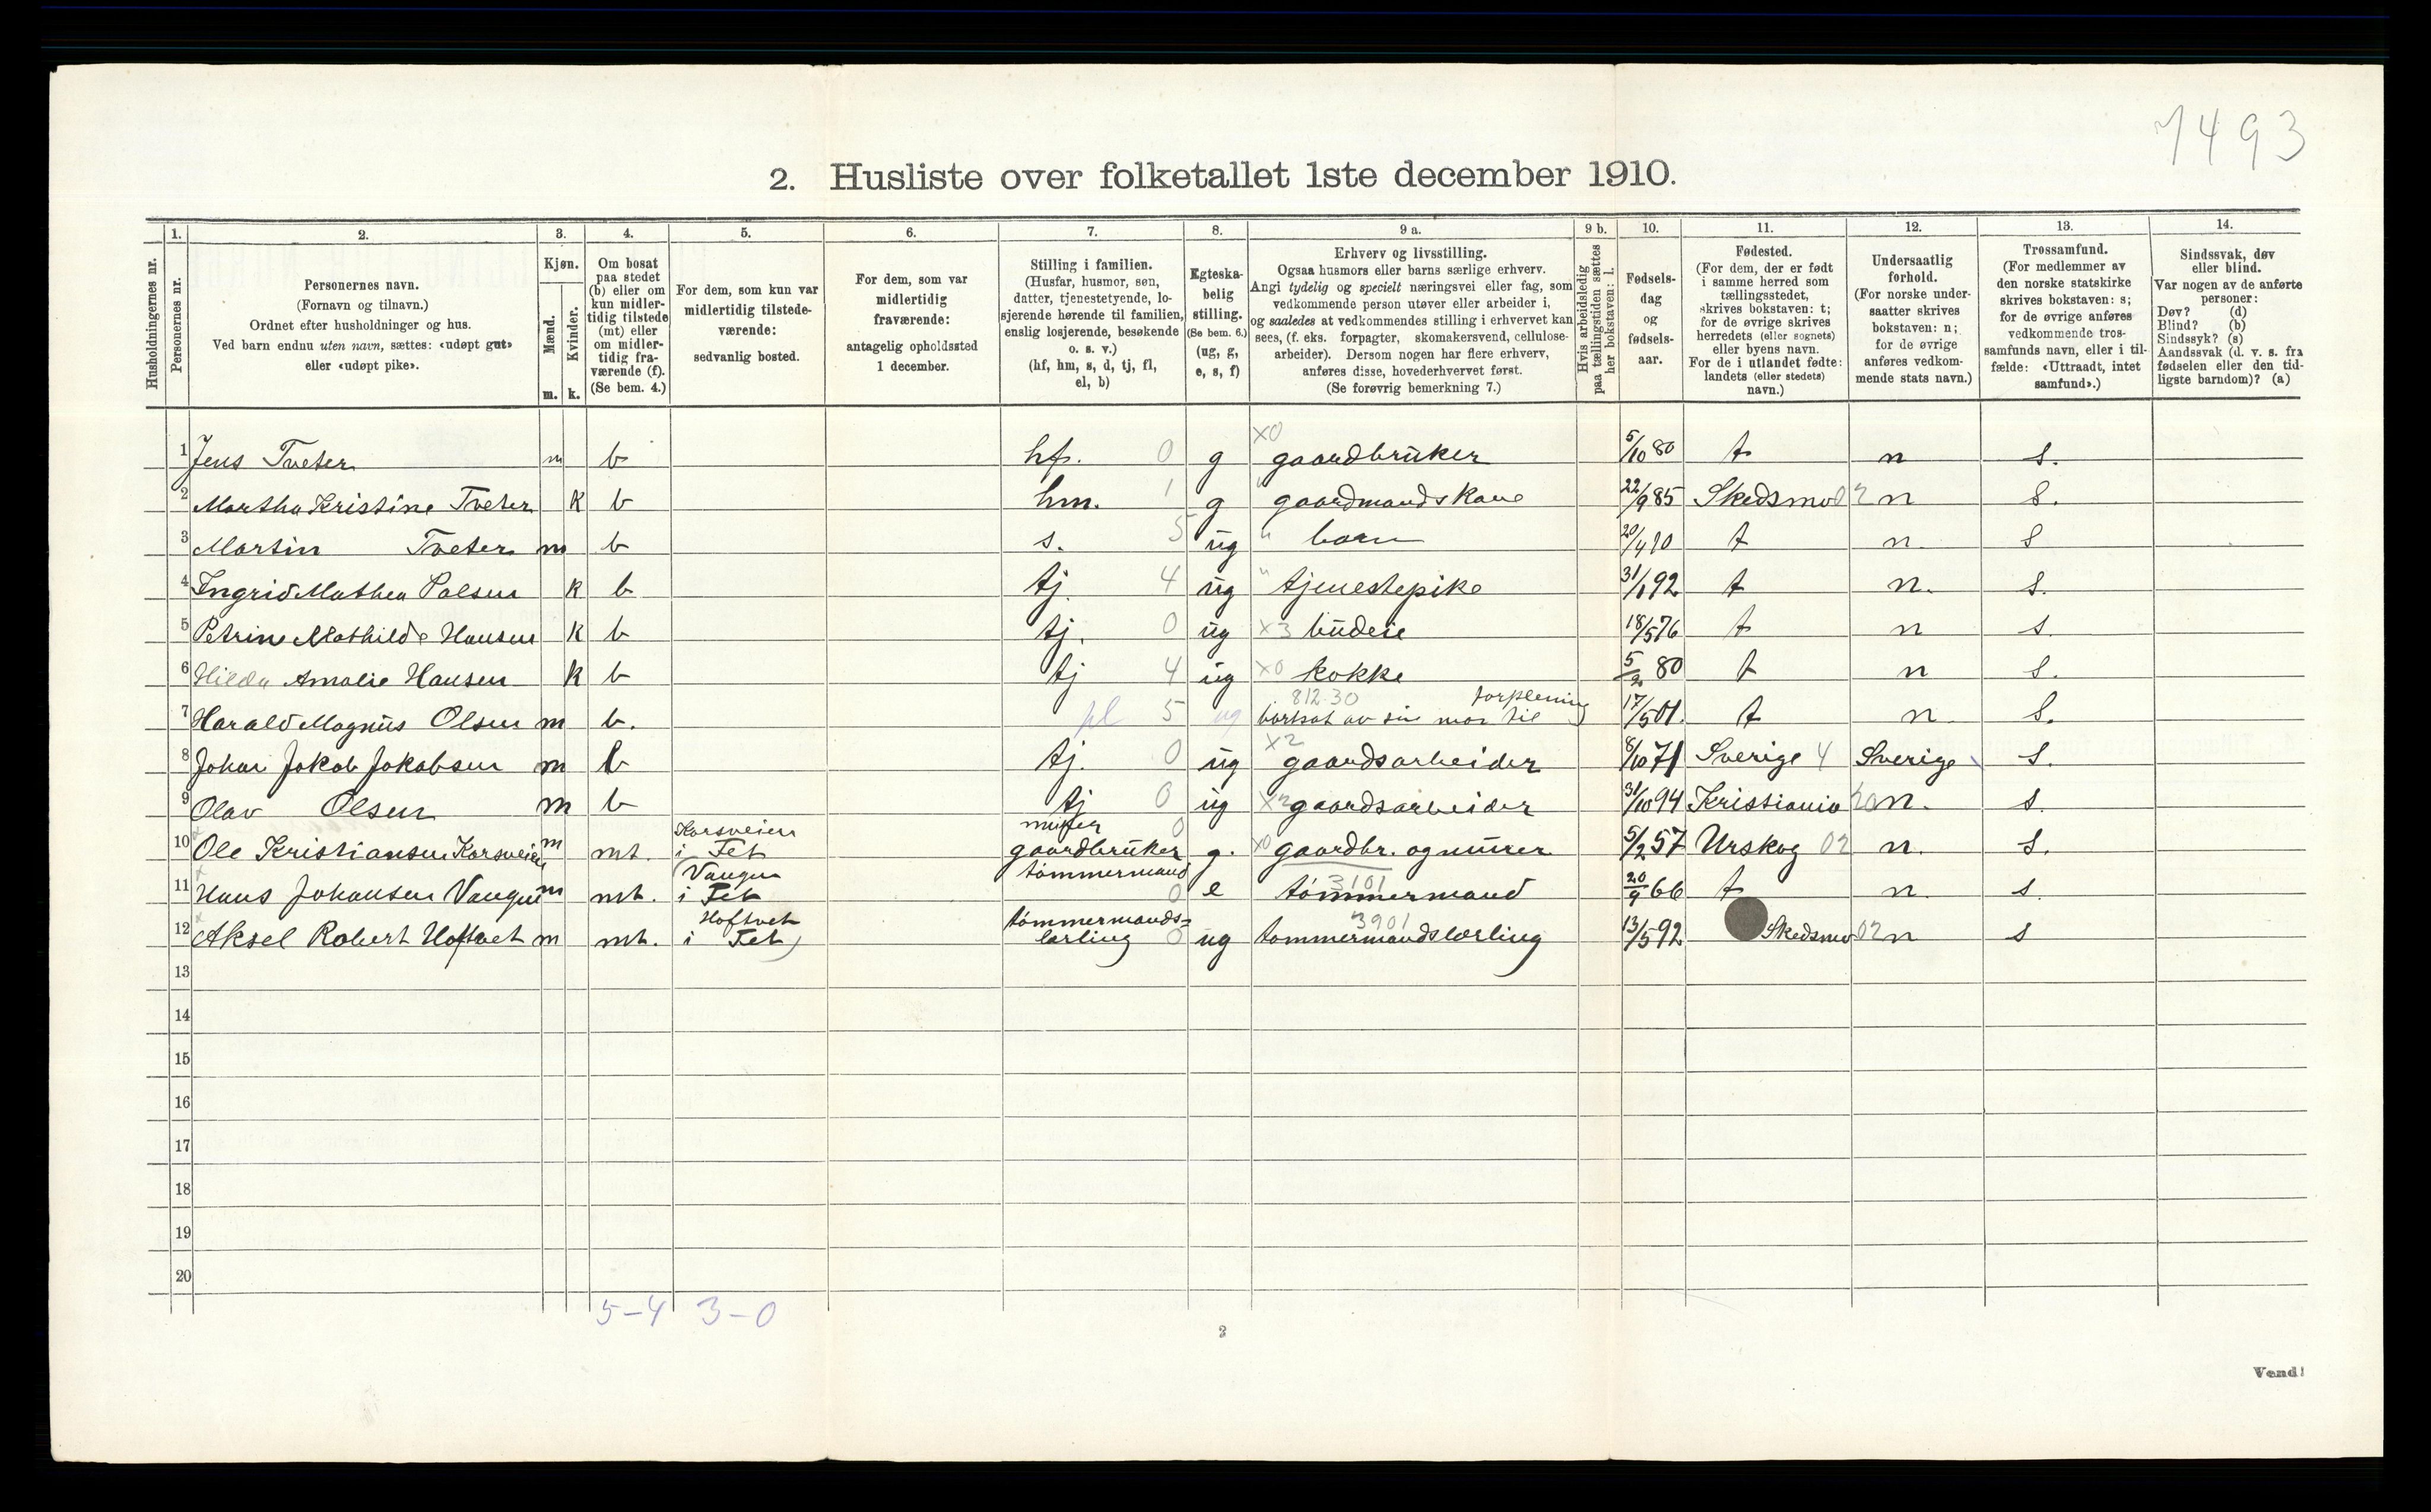 7493
2. Husliste over folketallet 1ste december 1910.
Husholdningernes nr.
1. Personernes nr.
2. Personernes navn.
(Fornavn og tilnavn.)
Ordnet efter husholdninger og hus.
Ved barn endnu uten navn, sættes: «udøpt gut»
eller «udøpt pike».
3. Kjøn.
Mænd. m.
Kvinder. k.
4. Om bosat
paa stedet
(b) eller om
kun midler-
tidig tilstede
(mt) eller
om midler-
tidig fra-
værende (f).
(Se bem. 4.)
5. For dem, som kun var
midlertidig tilstede-
værende:
sedvanlig bosted.
6. For dem, som var
midlertidig
fraværende:
antagelig opholdssted
1 december.
7. Stilling i familien.
(Husfar, husmor, søn,
datter, tjenestetyende, lo-
sjerende hørende til familien,
enslig losjerende, besøkende
o. s. v.)
(hf, hm, s, d, tj, fl,
el, b)
8. Egteska-
belig
stilling.
(Se bem. 6.)
(ug, g,
e, s, f)
9 a. Erhverv og livsstilling.
Ogsaa husmors eller barns særlige erhverv.
Angi tydelig og specielt næringsvei eller fag, som
vedkommende person utøver eller arbeider i,
og saaledes at vedkommendes stilling i erhvervet kan
sees, (f. eks. forpagter, skomakersvend, cellulose-
arbeider). Dersom nogen har flere erhverv,
anføres disse, hovederhvervet først.
(Se forøvrig bemerkning 7.)
9 b. Hvis arbeidsledig
paa tællingstiden sættes
her bokstaven: l.
10. Fødsels-
dag
og
fødsels-
aar.
11. Fødested.
(For dem, der er født
i samme herred som
tællingsstedet,
skrives bokstaven: t;
for de øvrige skrives
herredets (eller sognets)
eller byens navn.
For de i utlandet fødte:
landets (eller stedets)
navn.)
12. Undersaatlig
forhold.
(For norske under-
saatter skrives
bokstaven: n;
for de øvrige
anføres vedkom-
mende stats navn.)
13. Trossamfund.
(For medlemmer av
den norske statskirke
skrives bokstaven: s;
for de øvrige anføres
vedkommende tros-
samfunds navn, eller i til-
fælde: «Uttraadt, intet
samfund».)
14. Sindssvak, døv
eller blind.
Var nogen av de anførte
personer:
Døv? (d)
Blind? (b)
Sindssyk? (s)
Aandssvak (d. v. s. fra
fødselen eller den tid-
ligste barndom)? (a)
1 Jens Tveter m b hf. 0 g x0 gaardbruker 5/10 80 t n s.
2 Martha Kristine Tveter k b hm. 1 g " gaardmandskone 22/9 85 Skedsmo 02 n s.
3 Martin Tveter m b s. 5 ug " barn 20/4 10 t n. s
4 Ingrid Mathea Palsen k b tj. 4 ug " tjenestepike 31/1 92 t n. s.
5 Petrine Mathilde Hansen k b tj. 0 ug x3 budeie 18/5 76 t n s.
6 Hilda Amalie Hansen k b tj 4 ug x0 kokke 5/2 80 t n s.
7 Harald Magnus Olsen m b. pl 5 ug 812.30 bortsat av sin mor til forpleining 17/5 01. t n. s.
8 Johan Jakob Jakobsen m b tj. 0 ug x2 gaardsarbeider 8/10 71 Sverige 4 Sverige s.
9 Olav Olsen m b tj 0 ug x2 gaardsarbeider 31/10 94 Kristiania 20 n. s.
10 Ole Kristiansen Korsveien m mt. Korsveien i Fet murer gaardbruker 0 g. x0 gaardbr. og murer 5/2 57 Urskog 02 n. s.
11 Hans Johansen Vangen m mt. Vangen i Fet tømmermand 0 e 3101 tømmermand 20/9 66 t n s.
12 Aksel Robert Hoftvet m mt. Hoftvet i Fet tømmermands-lærling 0 ug 3901 tømmermandslærling 13/5 92 Skedsmo 02 n s
13
14
15
16
17
18
19
20
5-4 3-0
2
Vend!